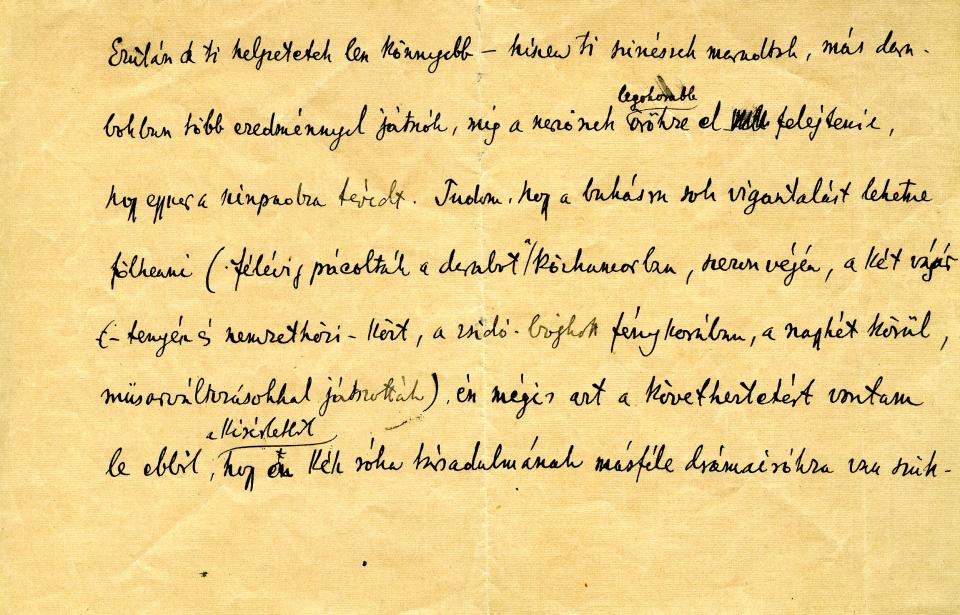 Ezután a ti helyzetetek len könnyebb – hiszen ti színészek maradtok, más dara-
bokban több eredménnyel játszók, míg a szerzőnek
legokosabb
örökre el felejtenie,
hogy egyszer a színpadra tévedt. Tudom, hogy a bukásra sok vigasztalást lehetne
fölhenni ( félévig pácolták a darabot "közhumorban, szezon végén, a két vásár
(– tenyész és nemzetközi – közt, a zsidó-bojkott fénykorában, a naghét körül,
műsorváltozásokkal játszották), én mégis azt a következtetést vontam
a kísérletből
le ebből, hogy Kék róka társadalmának másféle drámaírókra van szük-